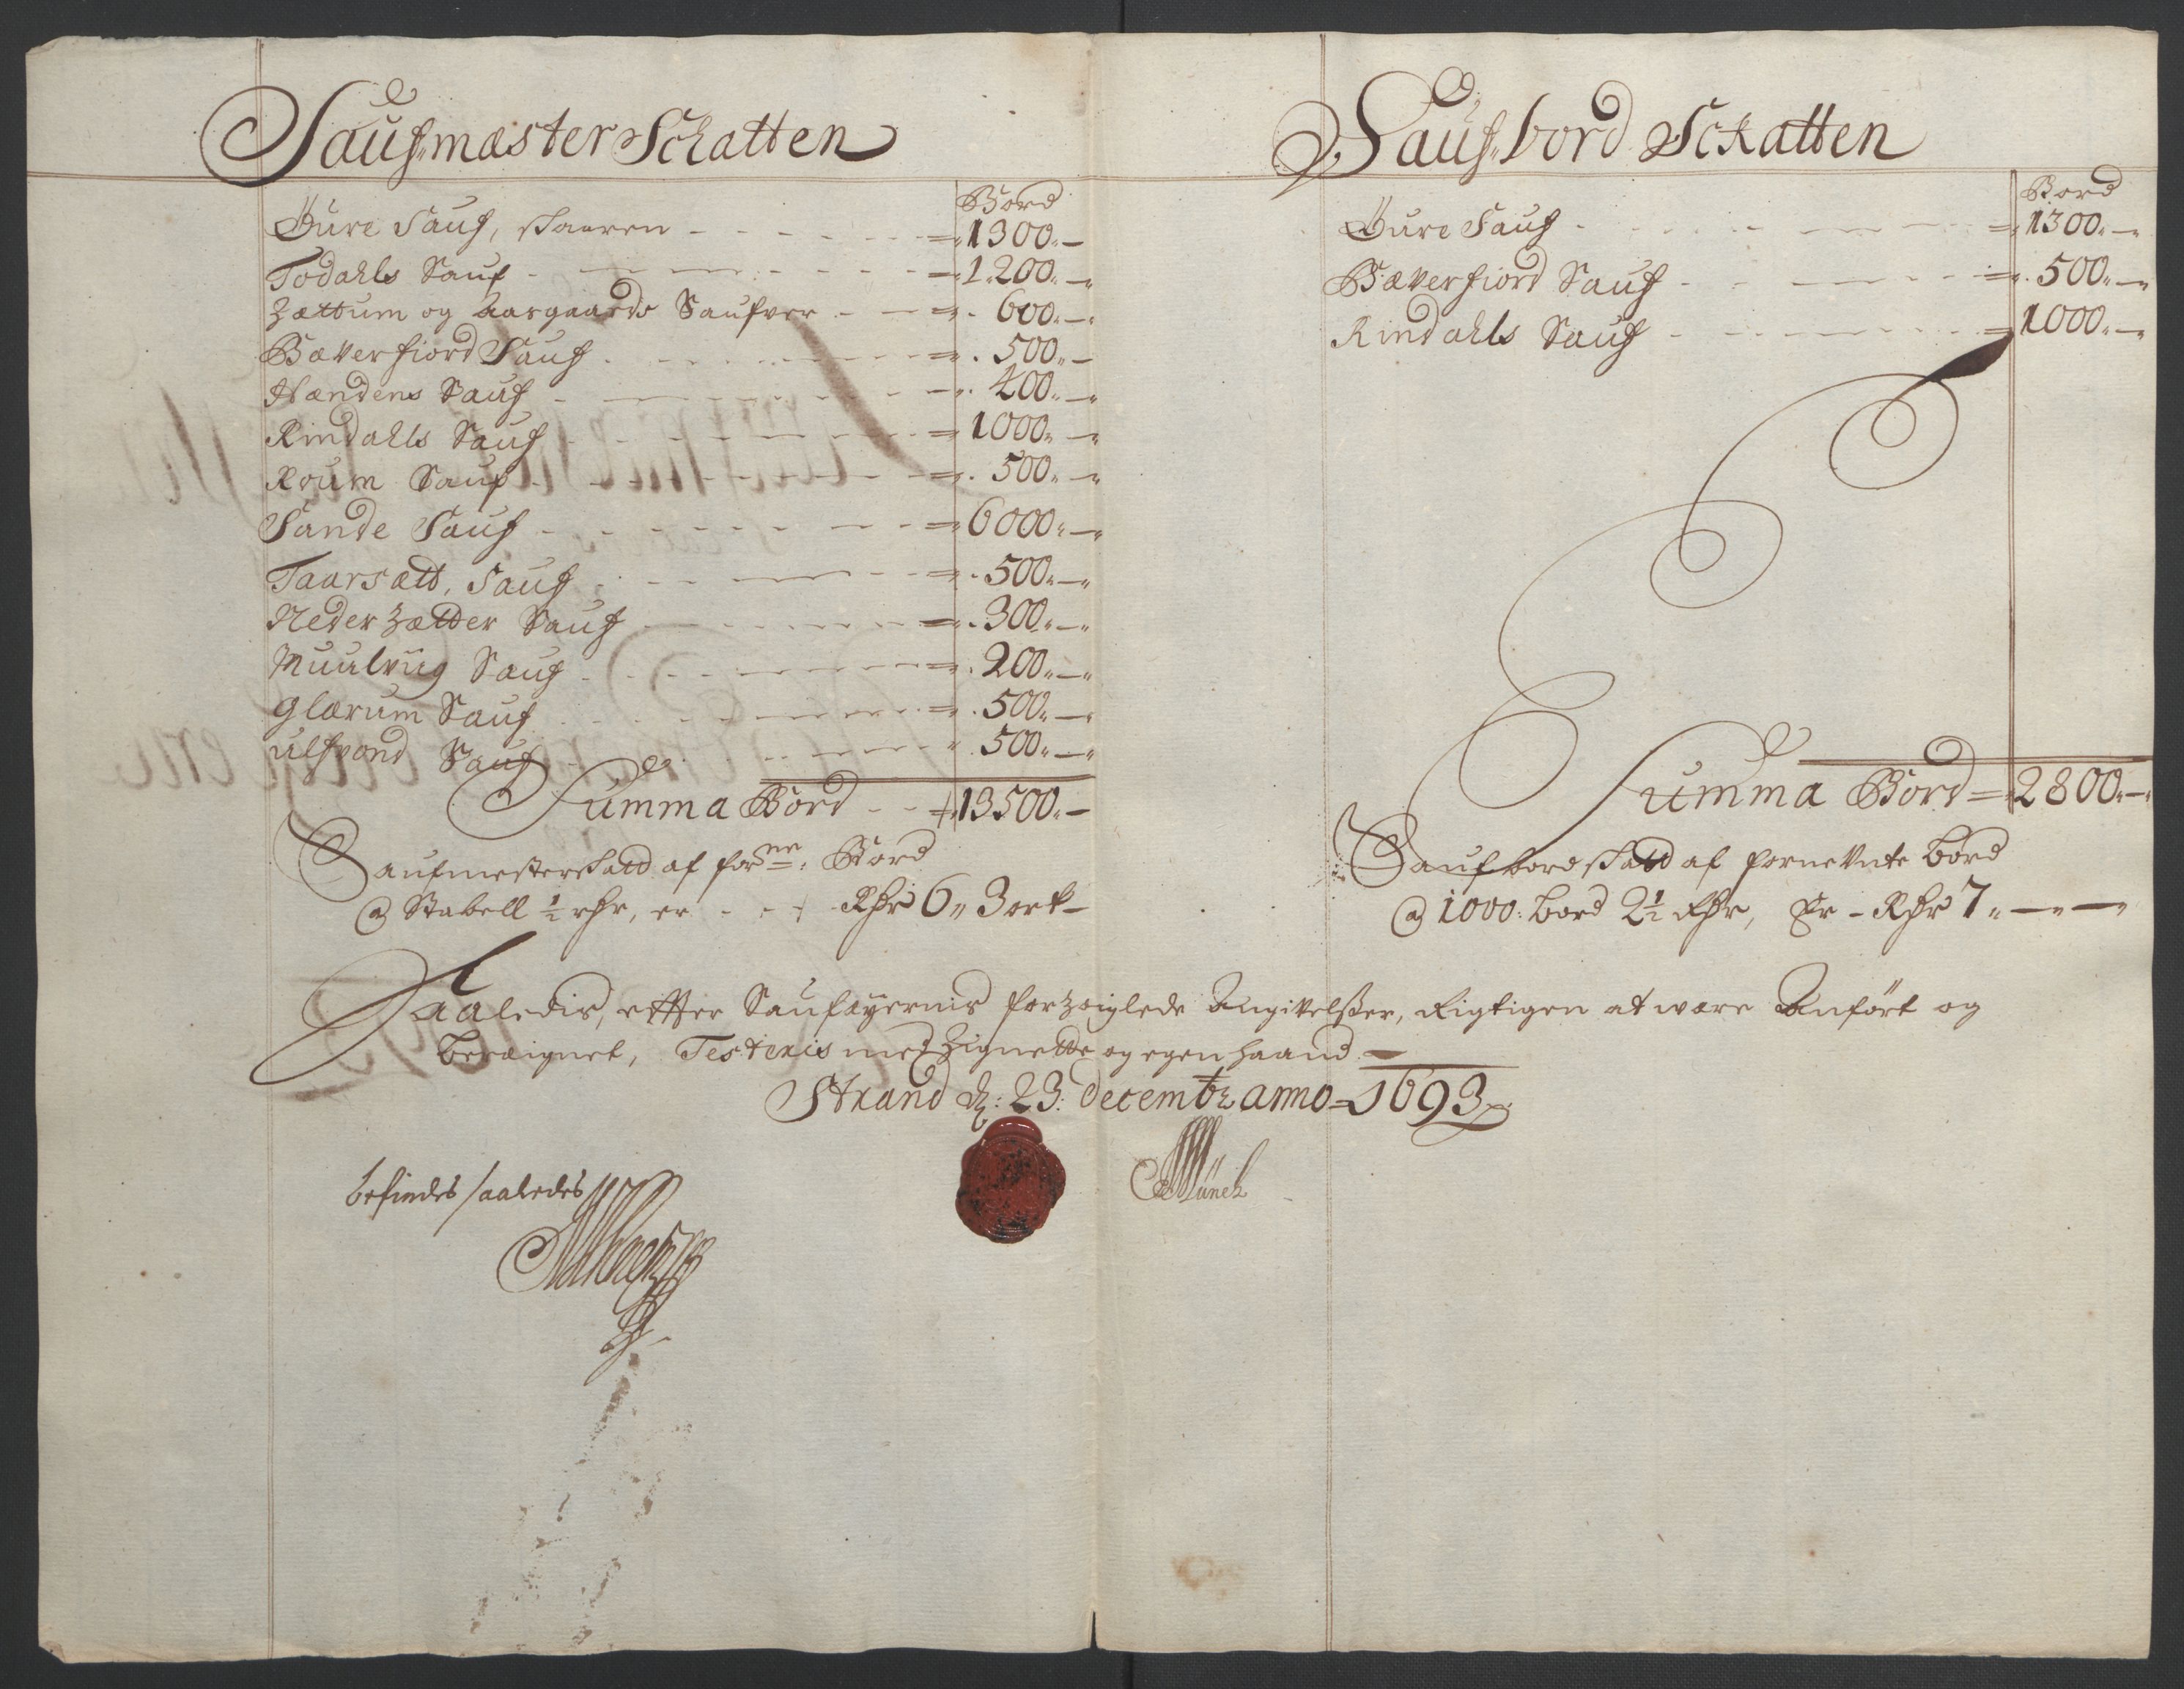 Saugmæster Schatten
Bord
Øure Saug, skaaren - - - 1300.-
Todahls Saug - - - 1200.-
Zættum og Aasgaards Saugver - - 600.-
Bæverfiord Saug - - - 500.-
Hændens Saug - - - 400.-
Rindahls Saug - - - 1000.-
Roum Saug - - - 500.-
Sande Saug - - - 6000.-
Taarsætt, Saug - - - 500.-
Neder Zætter Saug - - - 300.-
Muulviig Saug - - - 200.-
Glærum Saug - - - 500.-
Ulfvond Saug - - - 500.-
Summa Bord - - 13500.-
Saugmesterskatt af forne: Bord
@ Stabell ½ rhr, er - - Rhr 6„ 3 ort-
Saug-bord Schatten
Bord
Øure Saug - - - 1300.-
Bæverfiord Saug - - - 500.-
Rindahls Saug - - - 1000.-
Summa Bord = 2800.-
Saugbordskatt af fornevnte bord
@ 1000: bord 2½ Rhr, Er - Rhr 7„ - -
Saaledis, effter Saugæyernis forzeiglede Angivelsser, Rigtigen at være Anført og
beræignet, Testeris med Zignette og egen haand -
Strand d: 23: decembr anno 1693
Münch
befindes saaledes